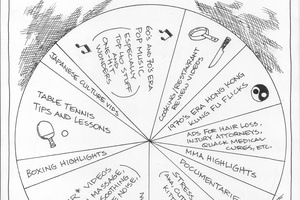 60'S AND 70'S ERA
POP MUSIC,
ESPECIALLY
TOP 40 STUFF
AND
ONE-HIT
WONDERS
COOKING/RESTAURANT
REVIEW VIDEOS
1970'S ERA HONG KONG
KUNG FU FLICKS
ADS FOR HAIR LOSS,
INJURY ATTORNEYS,
QUACK MEDICAL
CURES, ETC.
MMA HIGHLIGHTS
DOCUMENTARIE
STRESS
JAPANESE CULTURE VIDS
TABLE TENNIS
TIPS AND LESSONS
BOXING HIGHLIGHTS
VIDEOS
MASSAGE,
SOOTHING
NOISE,